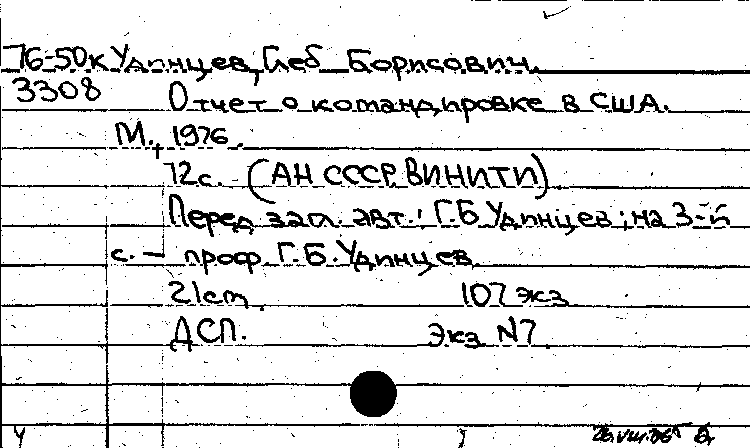 76-50к Удинцев, Глеб Борисович.
3308 Отчет о командировке в США.
М., 1976.
72с. (АН СССР. ВИНИТИ)
Перед загл. авт.: Г.Б. Удинцев; на 3-й
с. — проф. Г.Б. Удинцев
21cm. 107 экз
ДСП. Экз N7.